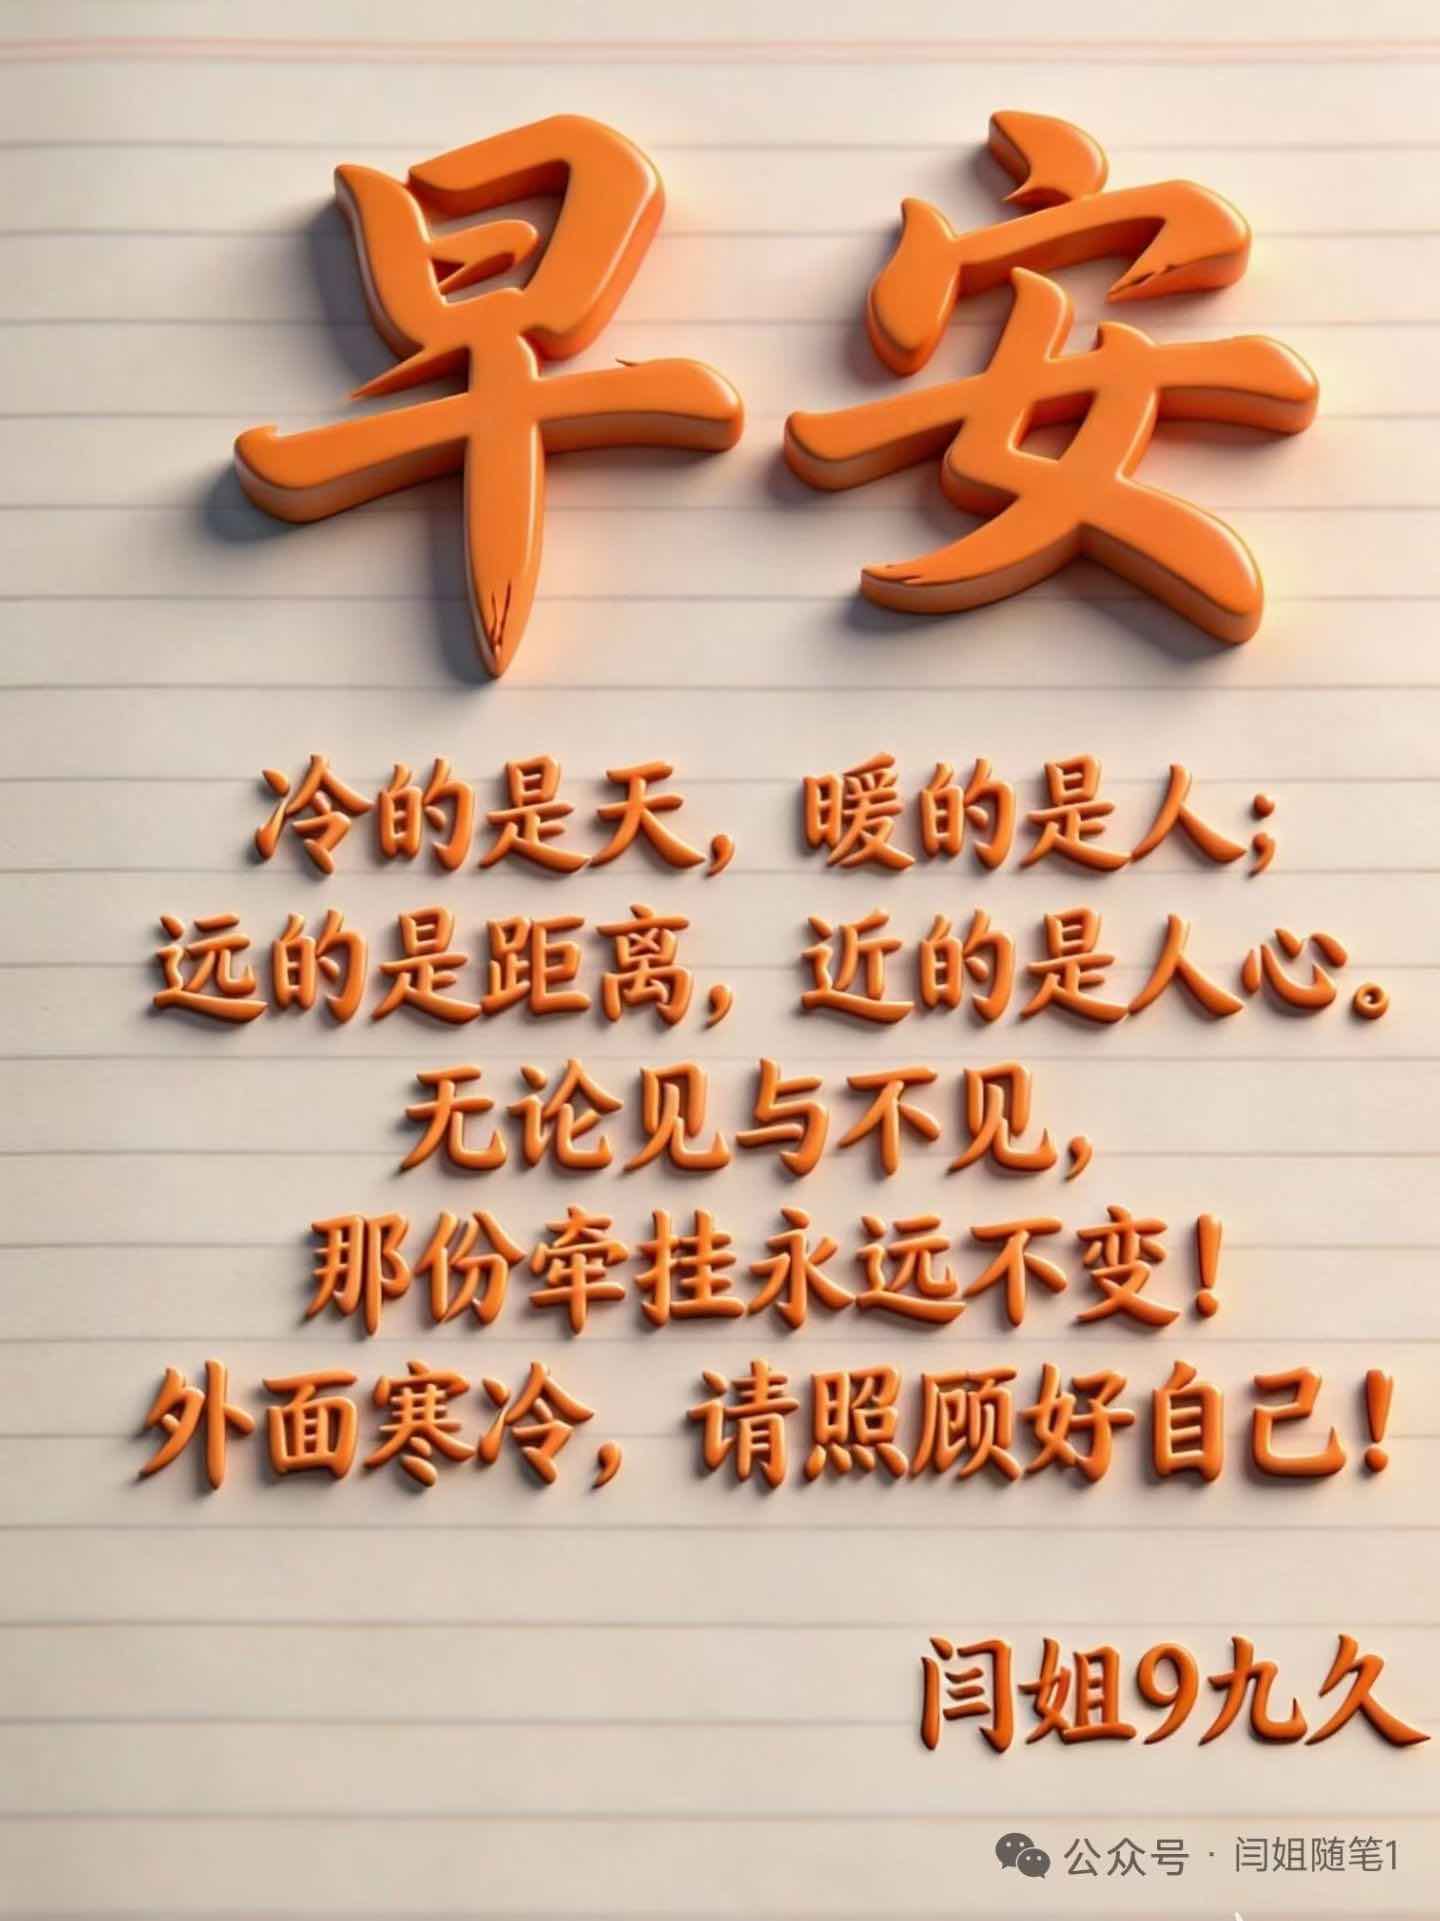 早安
冷的是天，暖的是人；
远的是距离，近的是人心。
无论见与不见，
那份牵挂永远不变！
外面寒冷，请照顾好自己！
闫姐9九久
公众号·闫姐随笔1